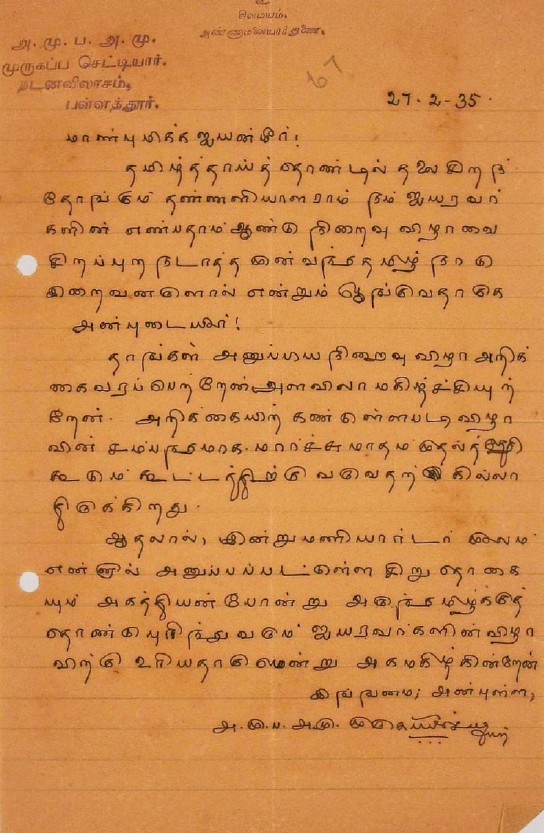 உ
சிவமயம்.
அண்ணாமலையார்துணை.
அ. மு. ப. அ. மு.
முருகப்ப செட்டியார்.
நடனவிலாசம்,
பள்ளத்தூர்.
27-2-35.
மாண்புமிக்க ஐயன்மீர்!
தமிழ்த்தாய்த் தொண்டில் தலைசிறந்
தோங்கும் தண்ணளியாளராம் நம் ஐயரவர்
களின் எண்பதாம் ஆண்டு நிறைவு விழாவை
சிறப்புற நடாத்த
இறைவனருளால் என்றும் ஓங்குவதாகுக
அன்புடையீர்!
தாங்கள் அனுப்பிய நிறைவு விழா அறிக்
கை வரப்பெற்றேன் அளவிலா மகிழ்ச்சியுற்
றேன். அறிக்கையிற் கண்டுள்ளபடி விழா
வின் சம்பந்தமாக மார்ச்சு மாதம் முதல்தேதி
கூடும் கூட்டத்திற்கு வருவதற்கில்லா
திருக்கிறது.
ஆதலால், இன்று மணியார்டர் மூலம்
என்னால் அனுப்பப்பட்டுள்ள சிறு தொகை
யும் அகத்தியன் போன்று அருந்தமிழ்க்குத்
தொண்டு புரிந்து வரும் ஐயரவர்களின் விழா
விற்கு உரியதாகுமென்று அகமகிழ்கின்றேன்
இங்ஙனம்; அன்புள்ள,
அ. மு. ப. அ. மு. முருகப்ப செட்டியார்